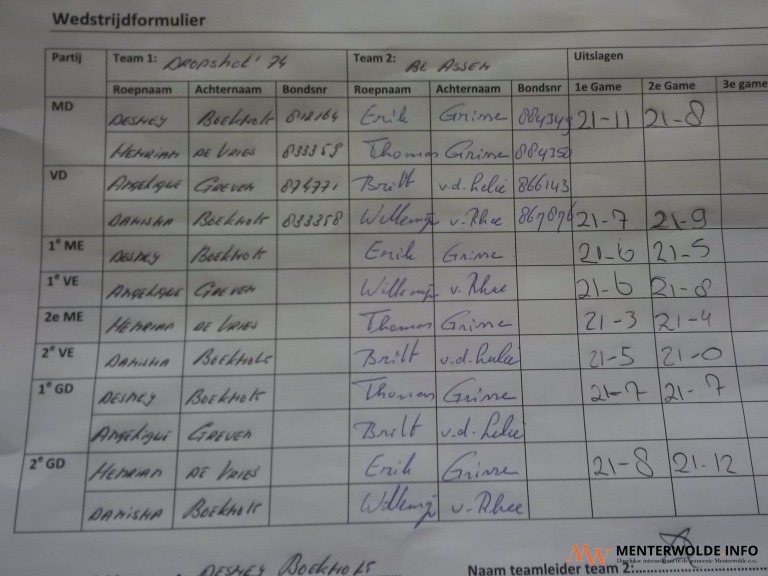 Wedstrijdformulier
Partij Team 1: DROPSHOT '74 Team 2: BC ASSEN Uitslagen
Roepnaam Achternaam Bondsnr Roepnaam Achternaam Bondsnr 1e Game 2e Game 3e game
MD DESNEY BOEKHOLT 812164 Erik Grimme 884349 21-11 21-8
HENRIAN DE VRIES 833359 Thomas Grimme 884350
VD ANGELIQUE GREVEN 874771 Britt 866143
DANISHA BOEKHOLT 833358 Willemijn v. Rhee 867876 21-7 21-9
1e ME DESNEY BOEKHOLT Erik Grimme 21-6 21-5
1e VE ANGELIQUE GREVEN Willemijn v. Rhee 21-6 21-8
2e ME HENRIAN DE VRIES Thomas Grimme 21-3 21-4
2e VE DANISHA BOEKHOLT Britt 21-5 21-0
1e GD DESNEY BOEKHOLT Thomas Grimme 21-7 21-7
ANGELIQUE GREVEN Britt
2e GD HENRIAN DE VRIES Erik Grimme 21-8 21-12
DANISHA BOEKHOLT Willemijn v. Rhee
DESNEY BOEKHOLT Naam teamleider team 2:
MENTERWOLDE INFO